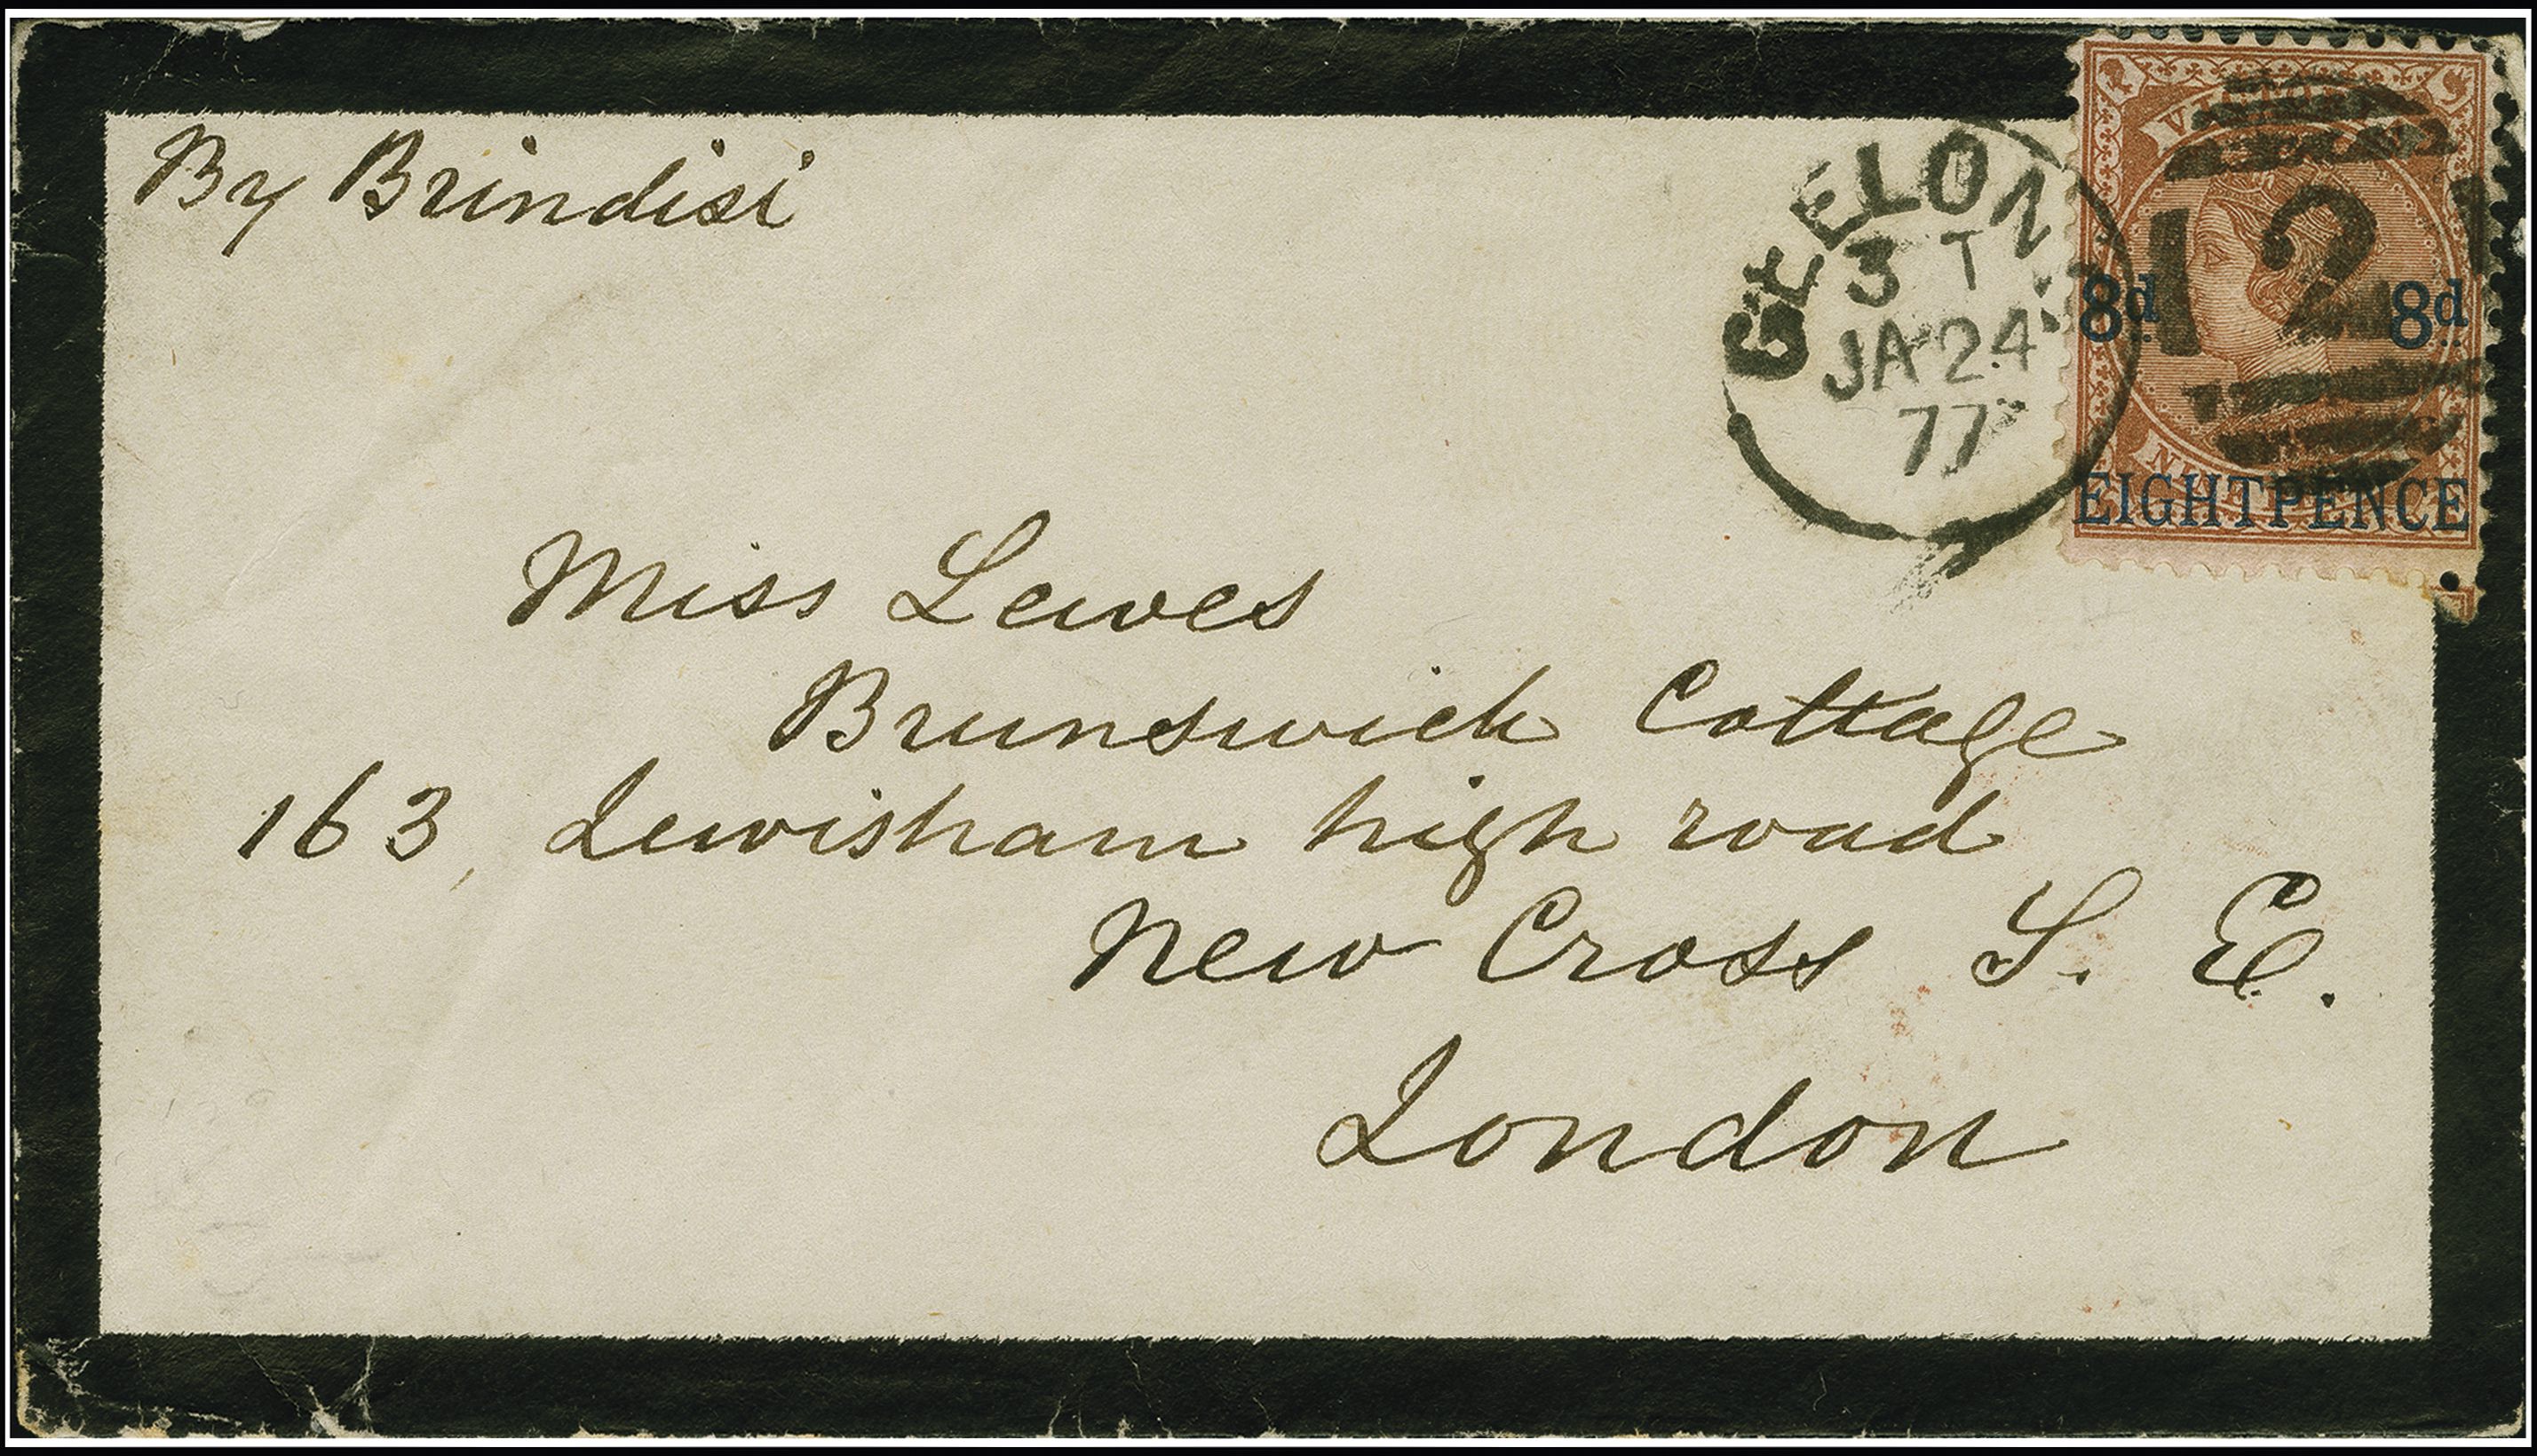 By Brindisi
GEELONG
3 T
JA 24
77
VICTORIA
12
8d. 8d.
NINE
EIGHTPENCE
Miss Lewes
Brunswick Cottage
163, Lewisham high road
New Cross S. E.
London